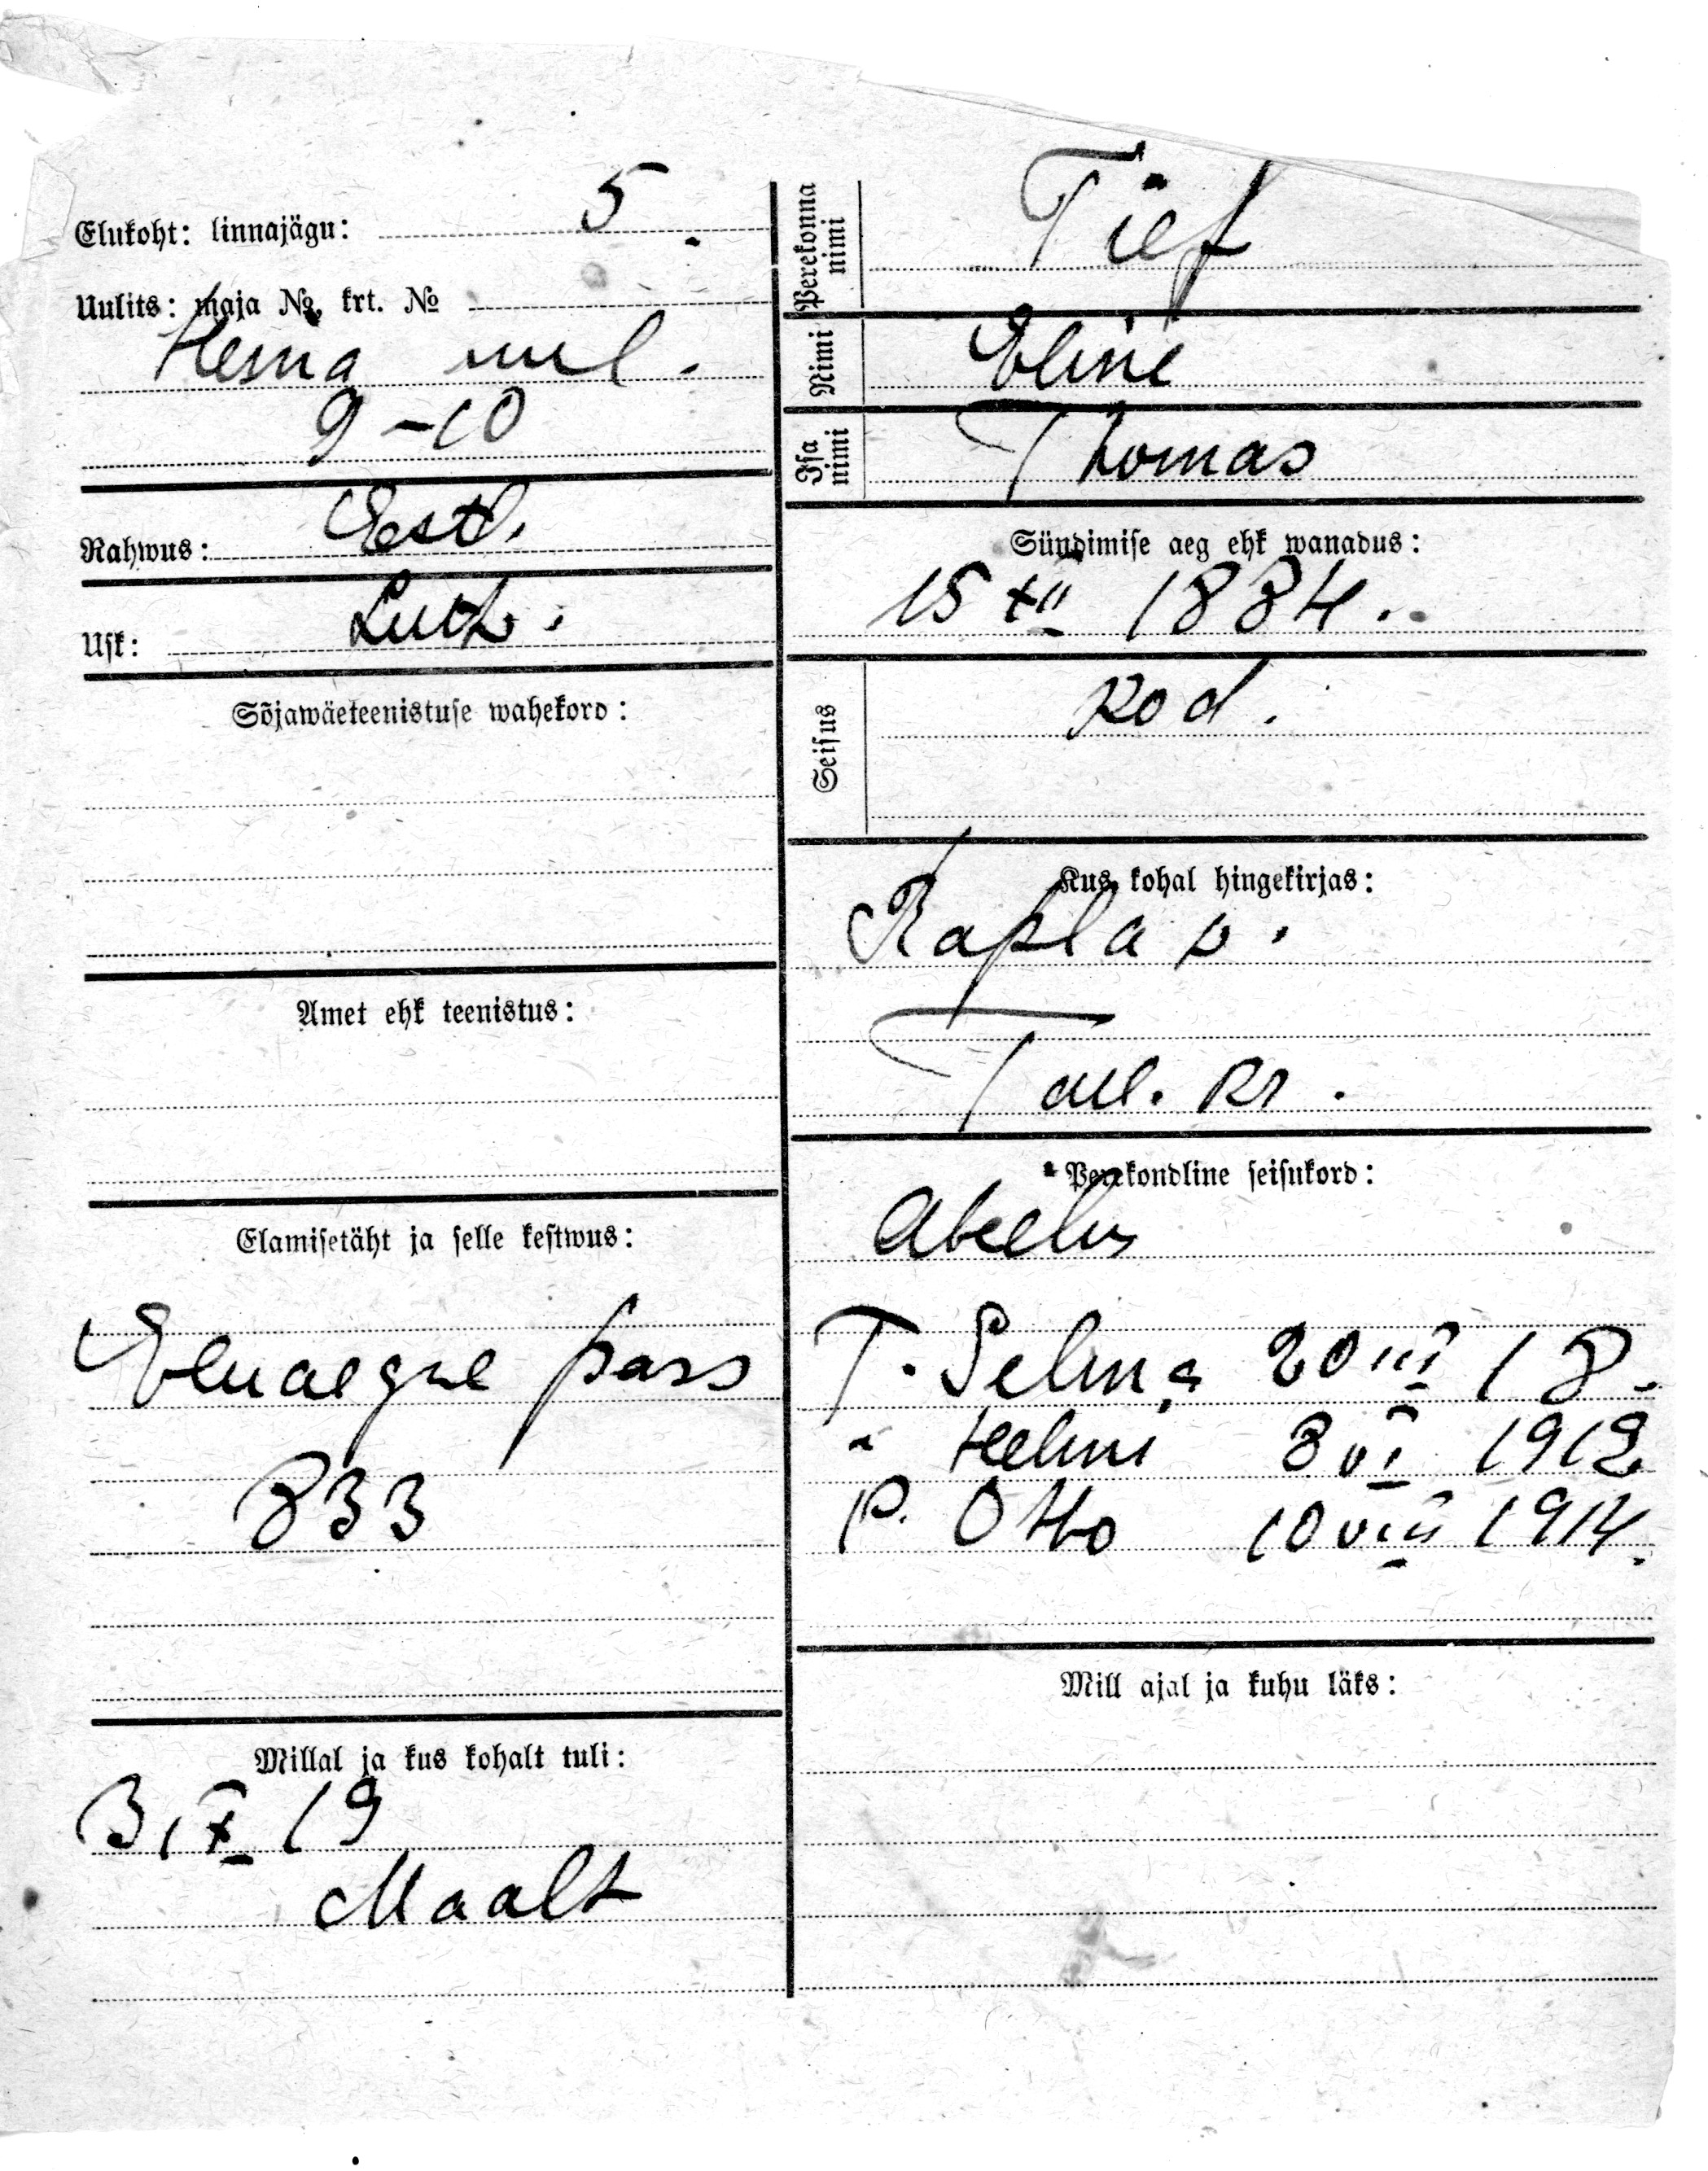 Elukoht: linnajägu: 5.
Uulits: maja №, krt. №
Herna uul.
9-10
Rahwus: Eestl.
Usk: Luth.
Sõjawäeteenistuse wahekord:
Amet ehk teenistus:
Elamisetäht ja selle kestwus:
Eluaegne pass
833
Millal ja kus kohalt tuli:
3 IX 19
Maalt
Perekonna nimi Tief
Nimi Eline
Isa nimi Thomas
Sündimise aeg ehk wanadus:
15 XII 1884.
Seisus kod.
Kus kohal hingekirjas:
Rapla v.
Tall. kr.
Perekondline seisukord:
Abielus
T. Selma 20 III 18.
" Helmi 3 VI 1912
P. Otto 10 VIII 1914.
Mill ajal ja kuhu läks: